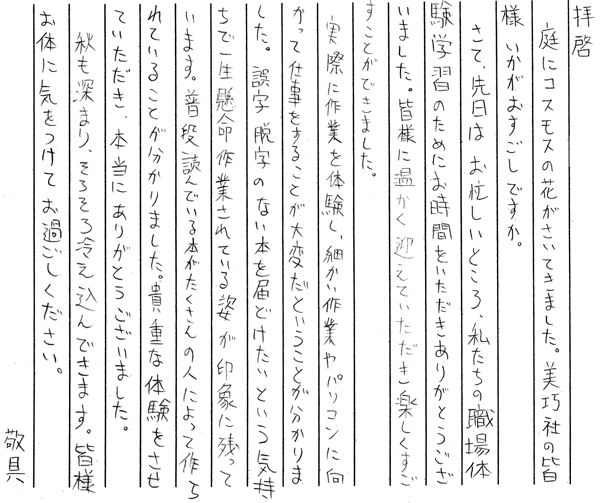 拝啓
庭にコスモスの花がさいてきました。美巧社の皆
様 いかがおすごしですか。
さて、先日は お忙しいところ、私たちの職場体
験学習のためにお時間をいただきありがとうござ
いました。皆様に温かく迎えていただき楽しくすご
すことができました。
実際に作業を体験し、細かい作業やパソコンに向
かって仕事をすることが大変だということが分かりま
した。誤字 脱字のない本を届どけたいという気持
ちで一生懸命作業されている姿が印象に残って
います。普段読んでいる本がたくさんの人によって作ら
れていることが分かりました。貴重な体験をさせ
ていただき、本当にありがとうございました。
秋も深まり、そろそろ冷え込んできます。皆様
お体に気をつけてお過ごしください。
敬具